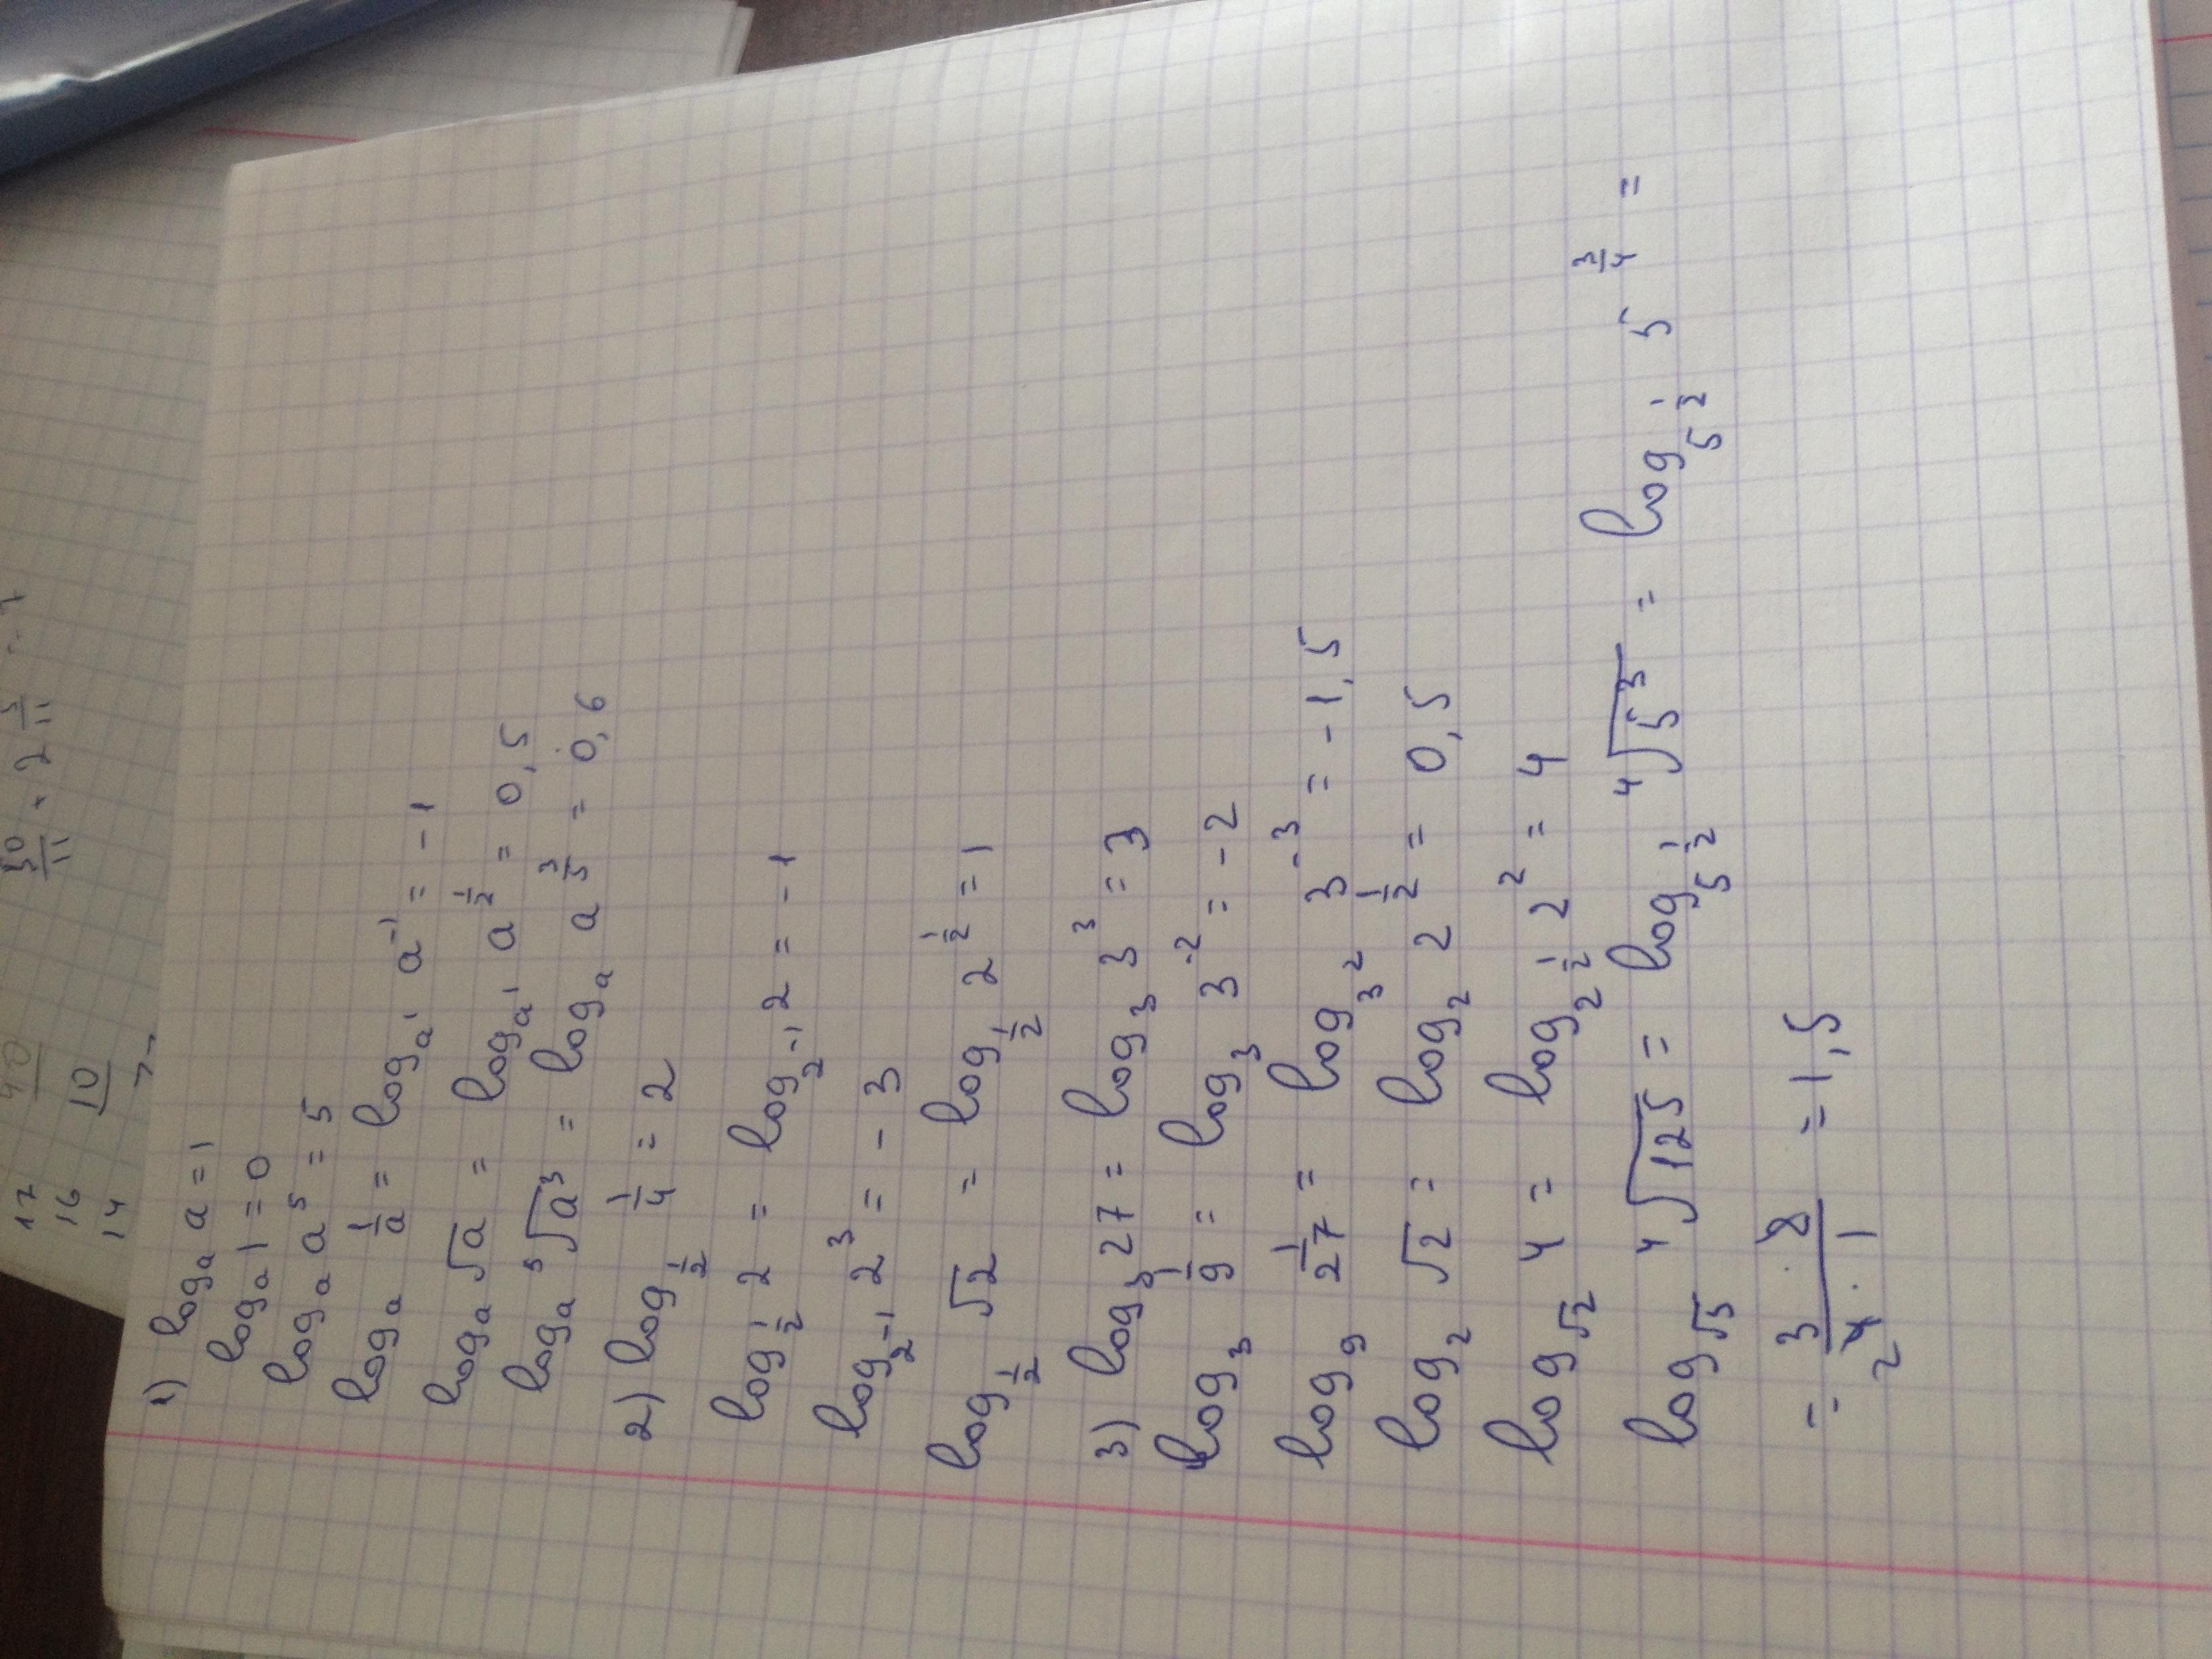 1) log_a a = 1
log_a 1 = 0
log_a a⁵ = 5
log_a 1/a = log_a¹ a⁻¹ = -1
log_a √a = log_a¹ a^(1/2) = 0,5
log_a ⁵√a³ = log_a a^(3/5) = 0,6
2) log_(1/2) 1/4 = 2
log_(1/2) 2 = log_(2⁻¹) 2 = -1
log_(2⁻¹) 2³ = -3
log_(1/2) √2 = log_(1/2) 2^(1/2) = 1
3) log_3 27 = log_3 3³ = 3
log_3 1/9 = log_3 3⁻² = -2
log_9 1/27 = log_(3²) 3⁻³ = -1,5
log_2 √2 = log_2 2^(1/2) = 0,5
log_√2 4 = log_(2^(1/2)) 2² = 4
log_√5 ⁴√125 = log_(5^(1/2)) ⁴√5³ = log_(5^(1/2)) 5^(3/4) =
= (3 · 2)/(4 · 1) = 1,5
2
17
16
14
10